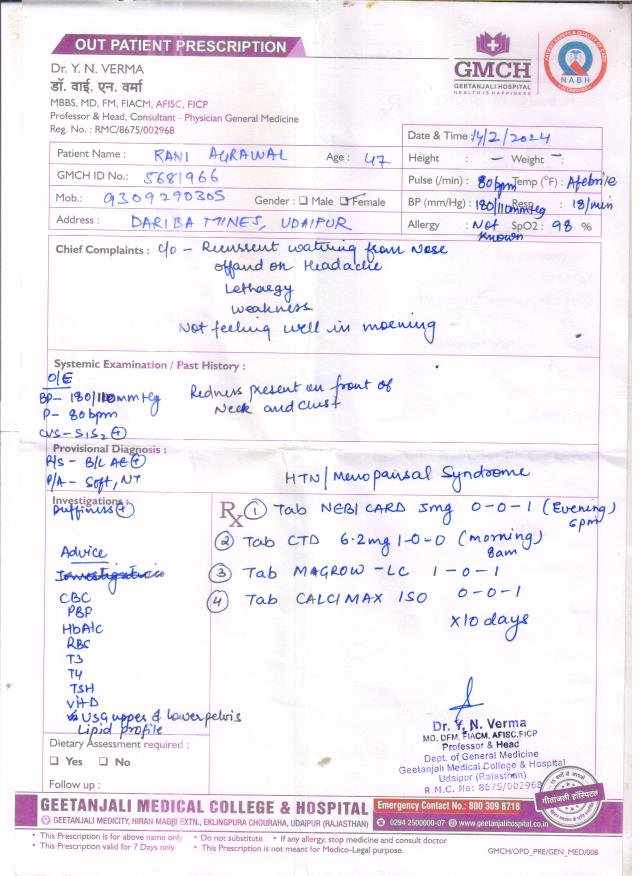 OUT PATIENT PRESCRIPTION
Dr. Y. N. VERMA
डॉ. वाई. एन. वर्मा
MBBS, MD, FM, FIACM, AFISC, FICP
Professor & Head, Consultant - Physician General Medicine
Reg. No. : RMC/8675/002968
GMCH
GEETANJALI HOSPITAL
HEALTH IS HAPPINESS
NABH
Date & Time : 14/2/2024
Patient Name : RANI AGRAWAL Age : 47
Height : - Weight - :
GMCH ID No.: 5681966
Pulse (/min) : 80 bpm Temp (°F) : Afebrile
Mob.: 9309290305 Gender : Male Female
BP (mm/Hg) : 180/110mmHg Resp. : 18/min
Address : DARIBA MINES, UDAIPUR
Allergy : Not known SpO2 : 98 %
Chief Complaints : c/o - Recurrent watring from Nose
off and on Headache
Lethargy
weakness
Not feeling well in morning
Systemic Examination / Past History :
O/E
BP- 180/110mmHg
P- 80bpm
CVS- S1S2 +
Redness present on front of
Neck and chest
Provisional Diagnosis :
R/S - B/L AE +
P/A - Soft, NT
HTN/Menopausal Syndrome
Investigations :
Puffiness +
Advice
Investigation
CBC
PBF
HbA1c
RBS
T3
T4
TSH
Vit D
USG upper & lower pelvis
Lipid profile
Rx 1 Tab NEBICARD 5mg 0-0-1 (Evening) 6pm
2 Tab CTD 6.2mg 1-0-0 (morning) 8am
3 Tab MAGROW-LC 1-0-1
4 Tab CALCIMAX ISO 0-0-1
x10 days
Dr. Y. N. Verma
MD, DFM, FIACM, AFISC, FICP
Professor & Head
Dept. of General Medicine
Geetanjali Medical College & Hospital
Udaipur (Rajasthan)
R.M.C. No: 8675/002968
Dietary Assessment required :
Yes No
Follow up :
गीतांजली हॉस्पिटल
GEETANJALI MEDICAL COLLEGE & HOSPITAL
Emergency Contact No.: 800 309 8718
GEETANJALI MEDICITY, HIRAN MAGRI EXTN., EKLINGPURA CHOURAHA, UDAIPUR (RAJASTHAN)
0294 2500000-07 www.geetanjalihospital.co.in
• This Prescription is for above name only • Do not substitute • If any allergy, stop medicine and consult doctor
• This Prescription valid for 7 Days only • This Prescription is not meant for Medico-Legal purpose.
GMCH/OPD_PRE/GEN_MED/008